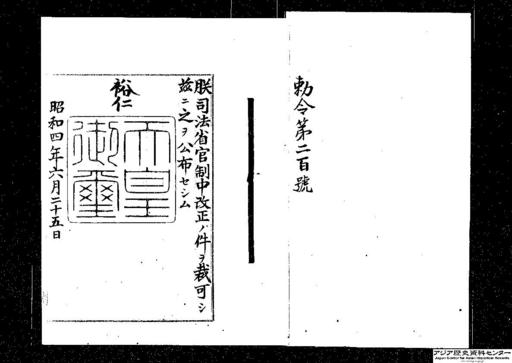 勅令第二百號
朕司法省官制中改正ノ件ヲ裁可シ
茲ニ之ヲ公布セシム
裕仁
天皇
御璽
昭和四年六月二十五日
アジア歴史資料センター
Japan Center for Asian Historical Records